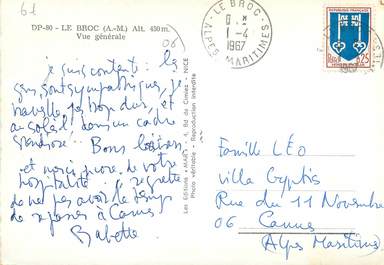 61
DP-80 - LE BROC (A.-M.) Alt. 450 m.
Vue générale
06
je suis contente : les
gens sont sympathiques, je
travaille pas trop dur, et
au soleil dans un cadre
grandiose. Bons baisers
et merci encore de votre
hospitalité. Je regrette
de ne pas avoir le temps
de repasser à Cannes
Babette
Les Editions "MAR" - 4, Bd de Cimiez - NICE
Photo véritable - Reproduction interdite
LE BROC
1 -4
1967
ALPES MARITIMES
REPUBLIQUE FRANÇAISE
0,25
Famille LÉO
Villa Gyptis
Rue du 11 Novembre
06 Cannes
(Alpes Maritimes)